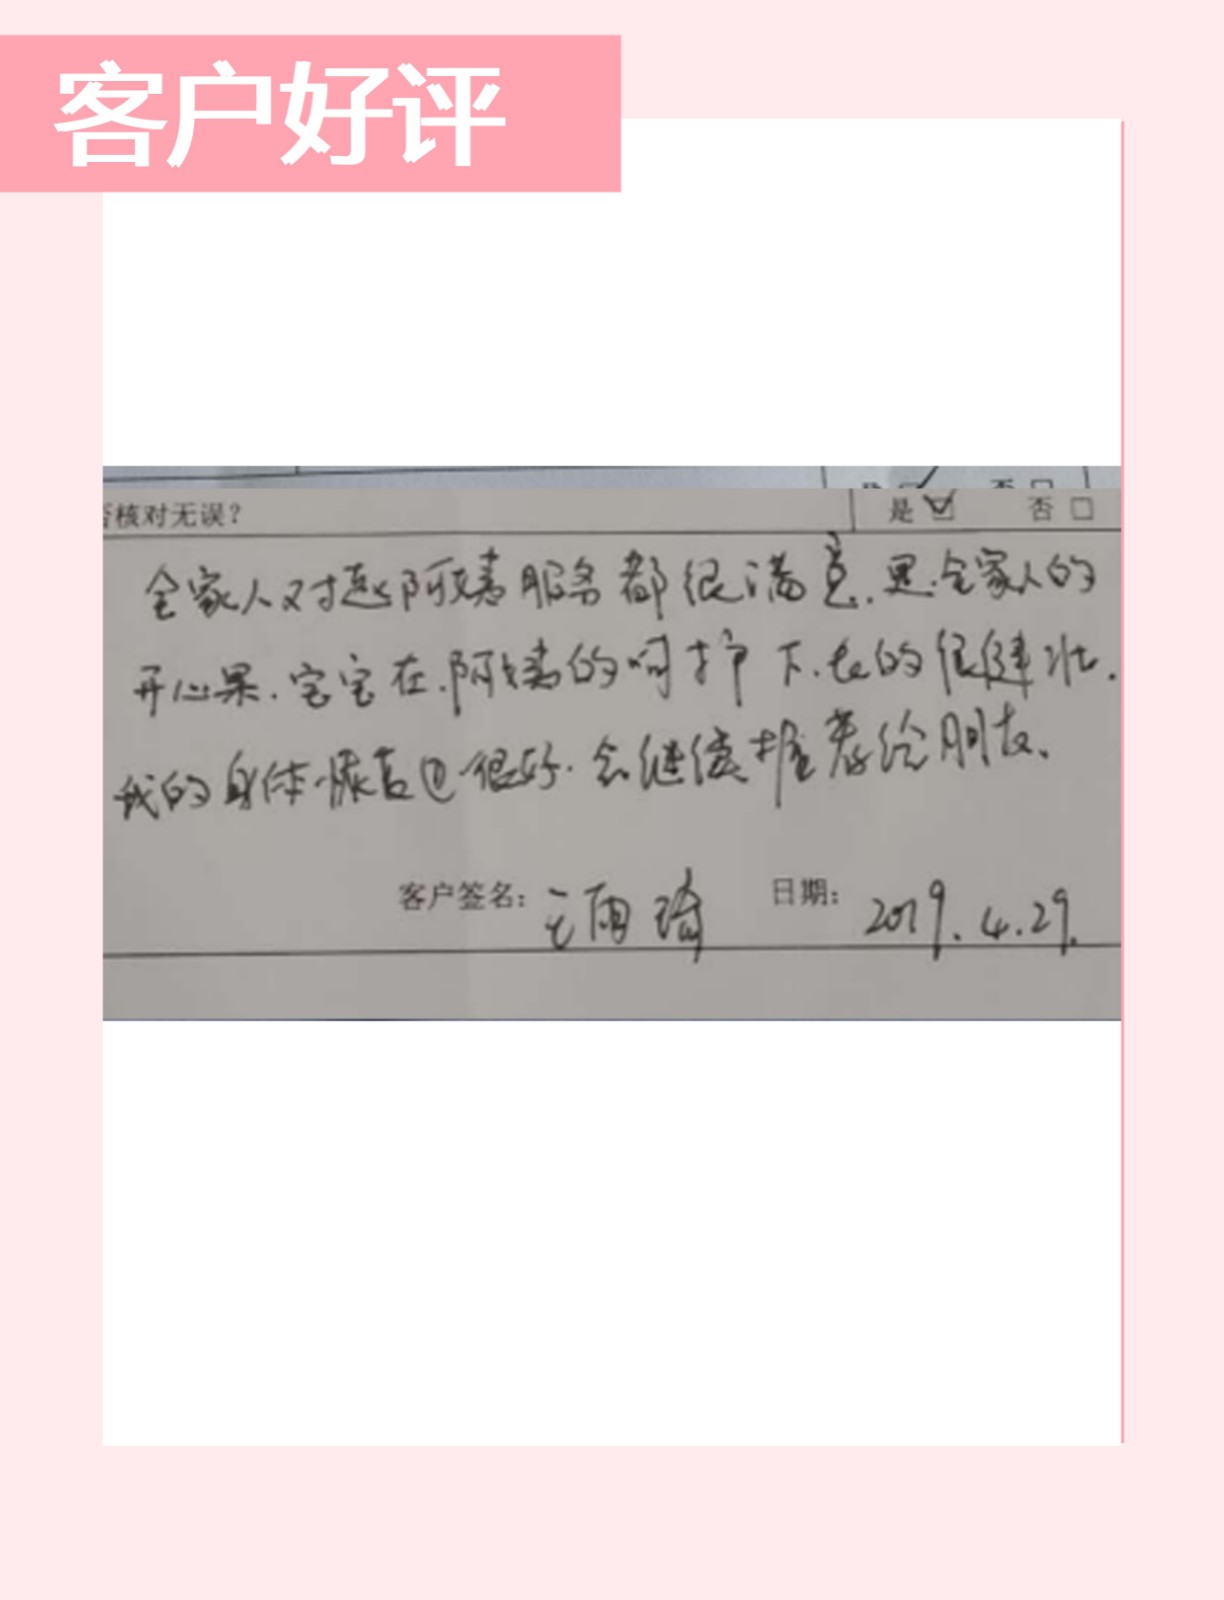 客户好评
核对无误？ 是 否
全家人对赵阿姨服务都很满意.是全家人的
开心果.宝宝在阿姨的呵护下.长的很健壮.
我的身体恢复也很好.会继续推荐给朋友、
客户签名：王雨琦 日期：2019.4.29.